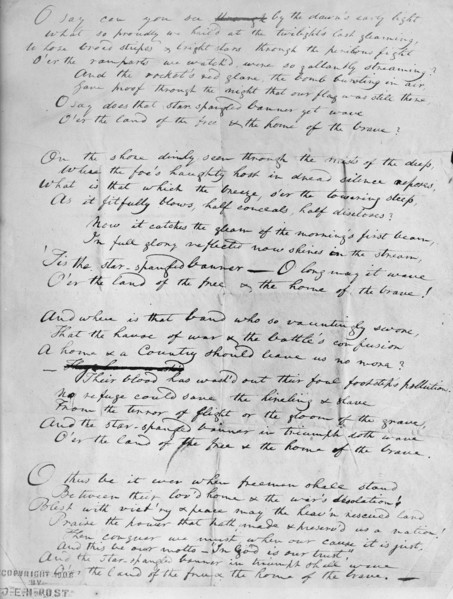 O say can you see through by the dawn's early light
What so proudly we hail'd at the twilight's last gleaming,
Whose broad stripes & bright stars through the perilous fight
O'er the ramparts we watch'd, were so gallantly streaming?
And the rocket's red glare, the bomb bursting in air,
Gave proof through the night that our flag was still there
O say does that star-spangled banner yet wave
O'er the land of the free & the home of the brave?
On the shore dimly seen through the mists of the deep,
Where the foe's haughty host in dread silence reposes,
What is that which the breeze, o'er the towering steep,
As it fitfully blows, half conceals, half discloses?
Now it catches the gleam of the morning's first beam,
In full glory reflected now shines in the stream,
'Tis the star-spangled banner — O long may it wave
O'er the land of the free & the home of the brave!
And where is that band who so vauntingly swore,
That the havoc of war & the battle's confusion
A home & a Country should leave us no more?
—
Their blood has wash'd out their foul footsteps pollution.
No refuge could save the hireling & slave
From the terror of flight or the gloom of the grave,
And the star-spangled banner in triumph doth wave
O'er the land of the free & the home of the brave.
O thus be it ever when freemen shall stand
Between their lov'd home & the war's desolation!
Blest with vict'ry & peace may the heav'n rescued land
Praise the power that hath made & preserv'd us a nation!
Then conquer we must, when our cause it is just,
And this be our motto - "In God is our trust,"
And the star-spangled banner in triumph shall wave
O'er the land of the free & the home of the brave. —
COPYRIGHT
BY
J.E.H. POST.